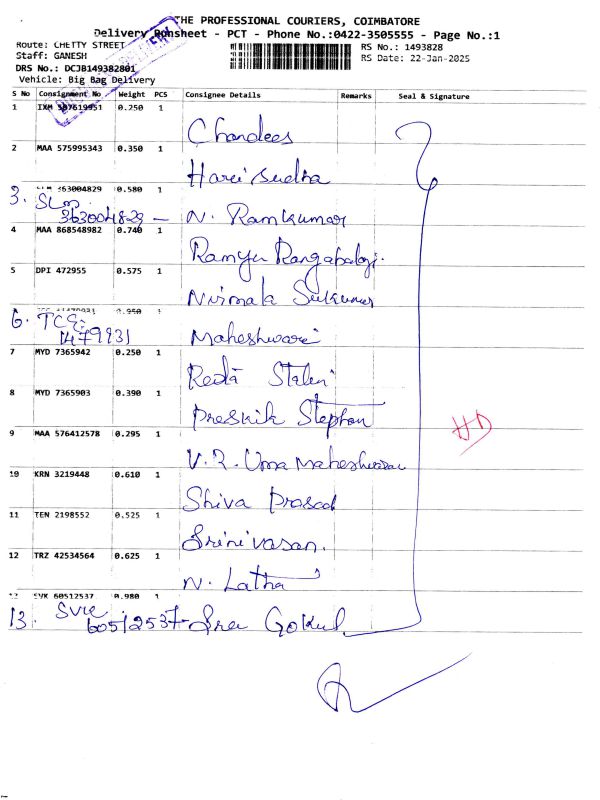 THE PROFESSIONAL COURIERS, COIMBATORE
Delivery Runsheet - PCT - Phone No.:0422-3505555 - Page No.:1
Route: CHETTY STREET
RS No.: 1493828
Staff: GANESH
RS Date: 22-Jan-2025
DRS No.: DCJB149382801
Vehicle: Big Bag Delivery
S No Consignment No Weight PCS Consignee Details Remarks Seal & Signature
1 IXM 587619951 0.250 1
Chandees
2 MAA 575995343 0.350 1
Hari Sudha
363004829 0.580 1
3. SLM
363004829 - N. Ramkumar
4 MAA 868548982 0.740 1
Ramya Rangabalaji.
5 DPI 472955 0.575 1
Nirmala Sukumar
0.950
6. TCE
Maheshwari
7 MYD 7365942 0.250 1
Reda Stalin
8 MYD 7365903 0.390 1
Preskik Stephan
9 MAA 576412578 0.295 1
HD
V.R. Uma Maheshwari
10 KRN 3219448 0.610 1
Shiva Prasad
11 TEN 2198552 0.525 1
Srinivasan.
12 TRZ 42534564 0.625 1
N. Latha
SVK 60512537 0.980 1
13. SVK
60512537 - Sree Gokul